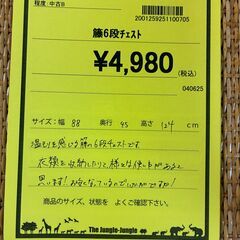 程度:中古B
2001259251100705
籐6段チェスト
¥4,980
(税込)
040625
サイズ:幅 88 奥行 45 高さ 124 cm
温もりを感じる籐の6段チェストです。
衣類を収納したりと、様々な使い方があると
思います!
商品のサイズ、状態を よくご確認下さい。
The Jungle-Jungle